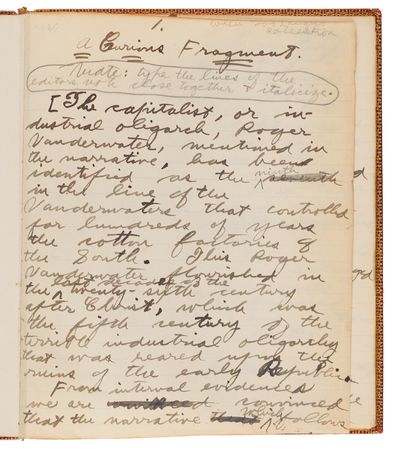 1.
A Curious Fragment.
Note: type the lines of the
editors note close together & italicize.
[The capitalist, or in-
dustrial oligarch, Roger
Vanderwater, mentioned in
the narrative, has been
ninth
identified as the seventh
in the line of the
Vanderwaters that controlled
for hundreds of years
the cotton factories of
the South. This Roger
Vanderwater flourished in
last decades of the
the twenty-sixth century
after Christ, which was
the fifth century of the
terrible industrial oligarchy
that was reared upon the
ruins of the early Republic.
From internal evidences
we are convinced
which
that the narrative follows